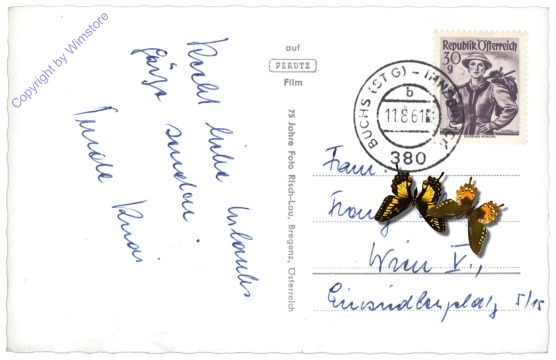 Copyright by Wimstore
Recht liebe Urlaubs
grüße senden
auf
PERUTZ
Film
75 Jahre Foto Risch-Lau, Bregenz, Österreich
Republik Österreich
30
g
BUCHS (ST G) - INN
b
11.8.61
380
Frau
Franz
Wien V.,
Einsiedlerplatz 5/15